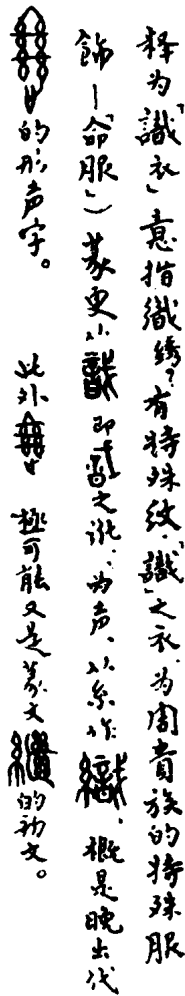 释为「識衣」意指織绣?有特殊纹「識」之衣.为周貴族的特殊服
飾—「命服」)篆更小 即 之訛.为声.从糸作 .概是晚出代
的形声字。 此外 極可能又是篆文 的初文。